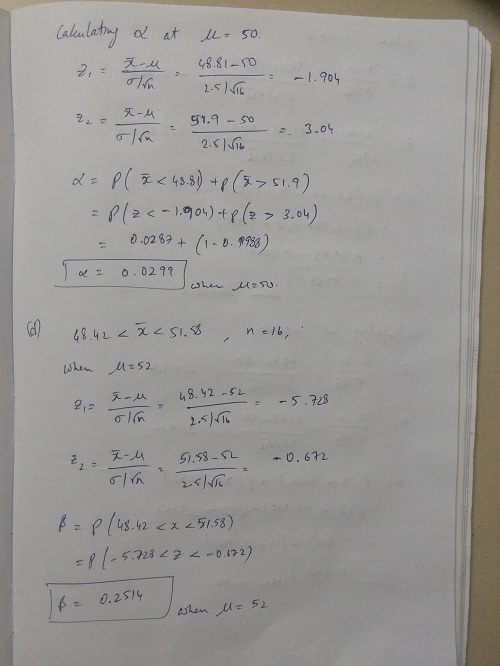 Calculating α at μ = 50.
z₁ = (x̄-μ)/(σ/√n) = (48.81-50)/(2.5/√16) = -1.904
z₂ = (x̄-μ)/(σ/√n) = (51.9-50)/(2.5/√16) = 3.04
α = P(x̄ < 48.81) + P(x̄ > 51.9)
= P(z < -1.904) + P(z > 3.04)
= 0.0287 + (1-0.9988)
α = 0.0299 when μ=50.
(d) 48.42 < x̄ < 51.58, n=16,
when μ=52
z₁= (x̄-μ)/(σ/√n) = (48.42-52)/(2.5/√16) = -5.728
z₂ = (x̄-μ)/(σ/√n) = (51.58-52)/(2.5/√16) = -0.672
β = P(48.42 < x < 51.58)
= P(-5.728 < z < -0.672)
β = 0.2514 when μ = 52